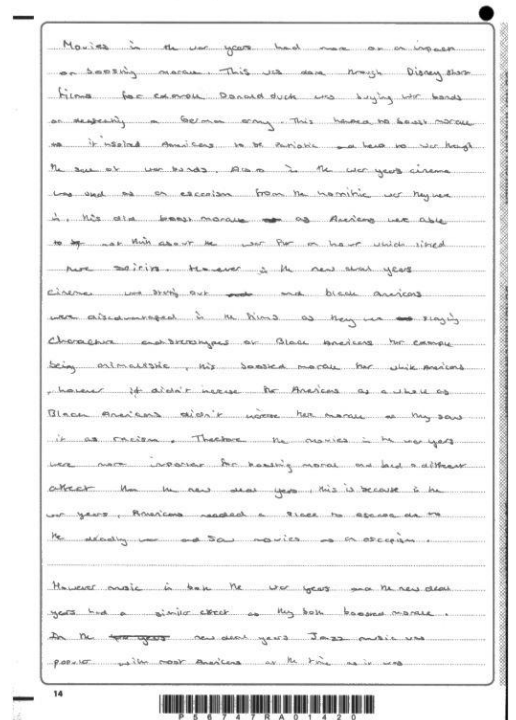 Movies in the war years had more of an impact
on boosting morale. This was done through Disney short
films for example Donald duck was buying war bonds
or defeating a German army. This helped to boost morale
as it inspired Americans to be patriotic and help to war through
the sale of war bonds. Also in the war years cinema
was used as an escapism from the horrific war they were
in, this did boost morale as Americans were able
to not think about the war for an hour which lifted
there spirits. However in the new deal years
cinema was starting out and black americans
were disadvantaged in the films as they was playing
characture and stereotypes of Black Americans for example
being animalistic, this boosted morale for white Americans
, however it didn't increase for Americans as a whole as
Black Americans didn't their morale as they saw
it as racism. Therefore the movies in the war years
were more important for boosting moral and had a different
affect than the new deal years, this is because in the
war years, Americans needed a place to escape due to
the deadly war and saw movies as an escapism.
However music in both the war years and the new deal
years had a similar effect as they both boosted morale.
In the new deal years Jazz music was
popular with most Americans at the time as it was
14
P56747RA01420